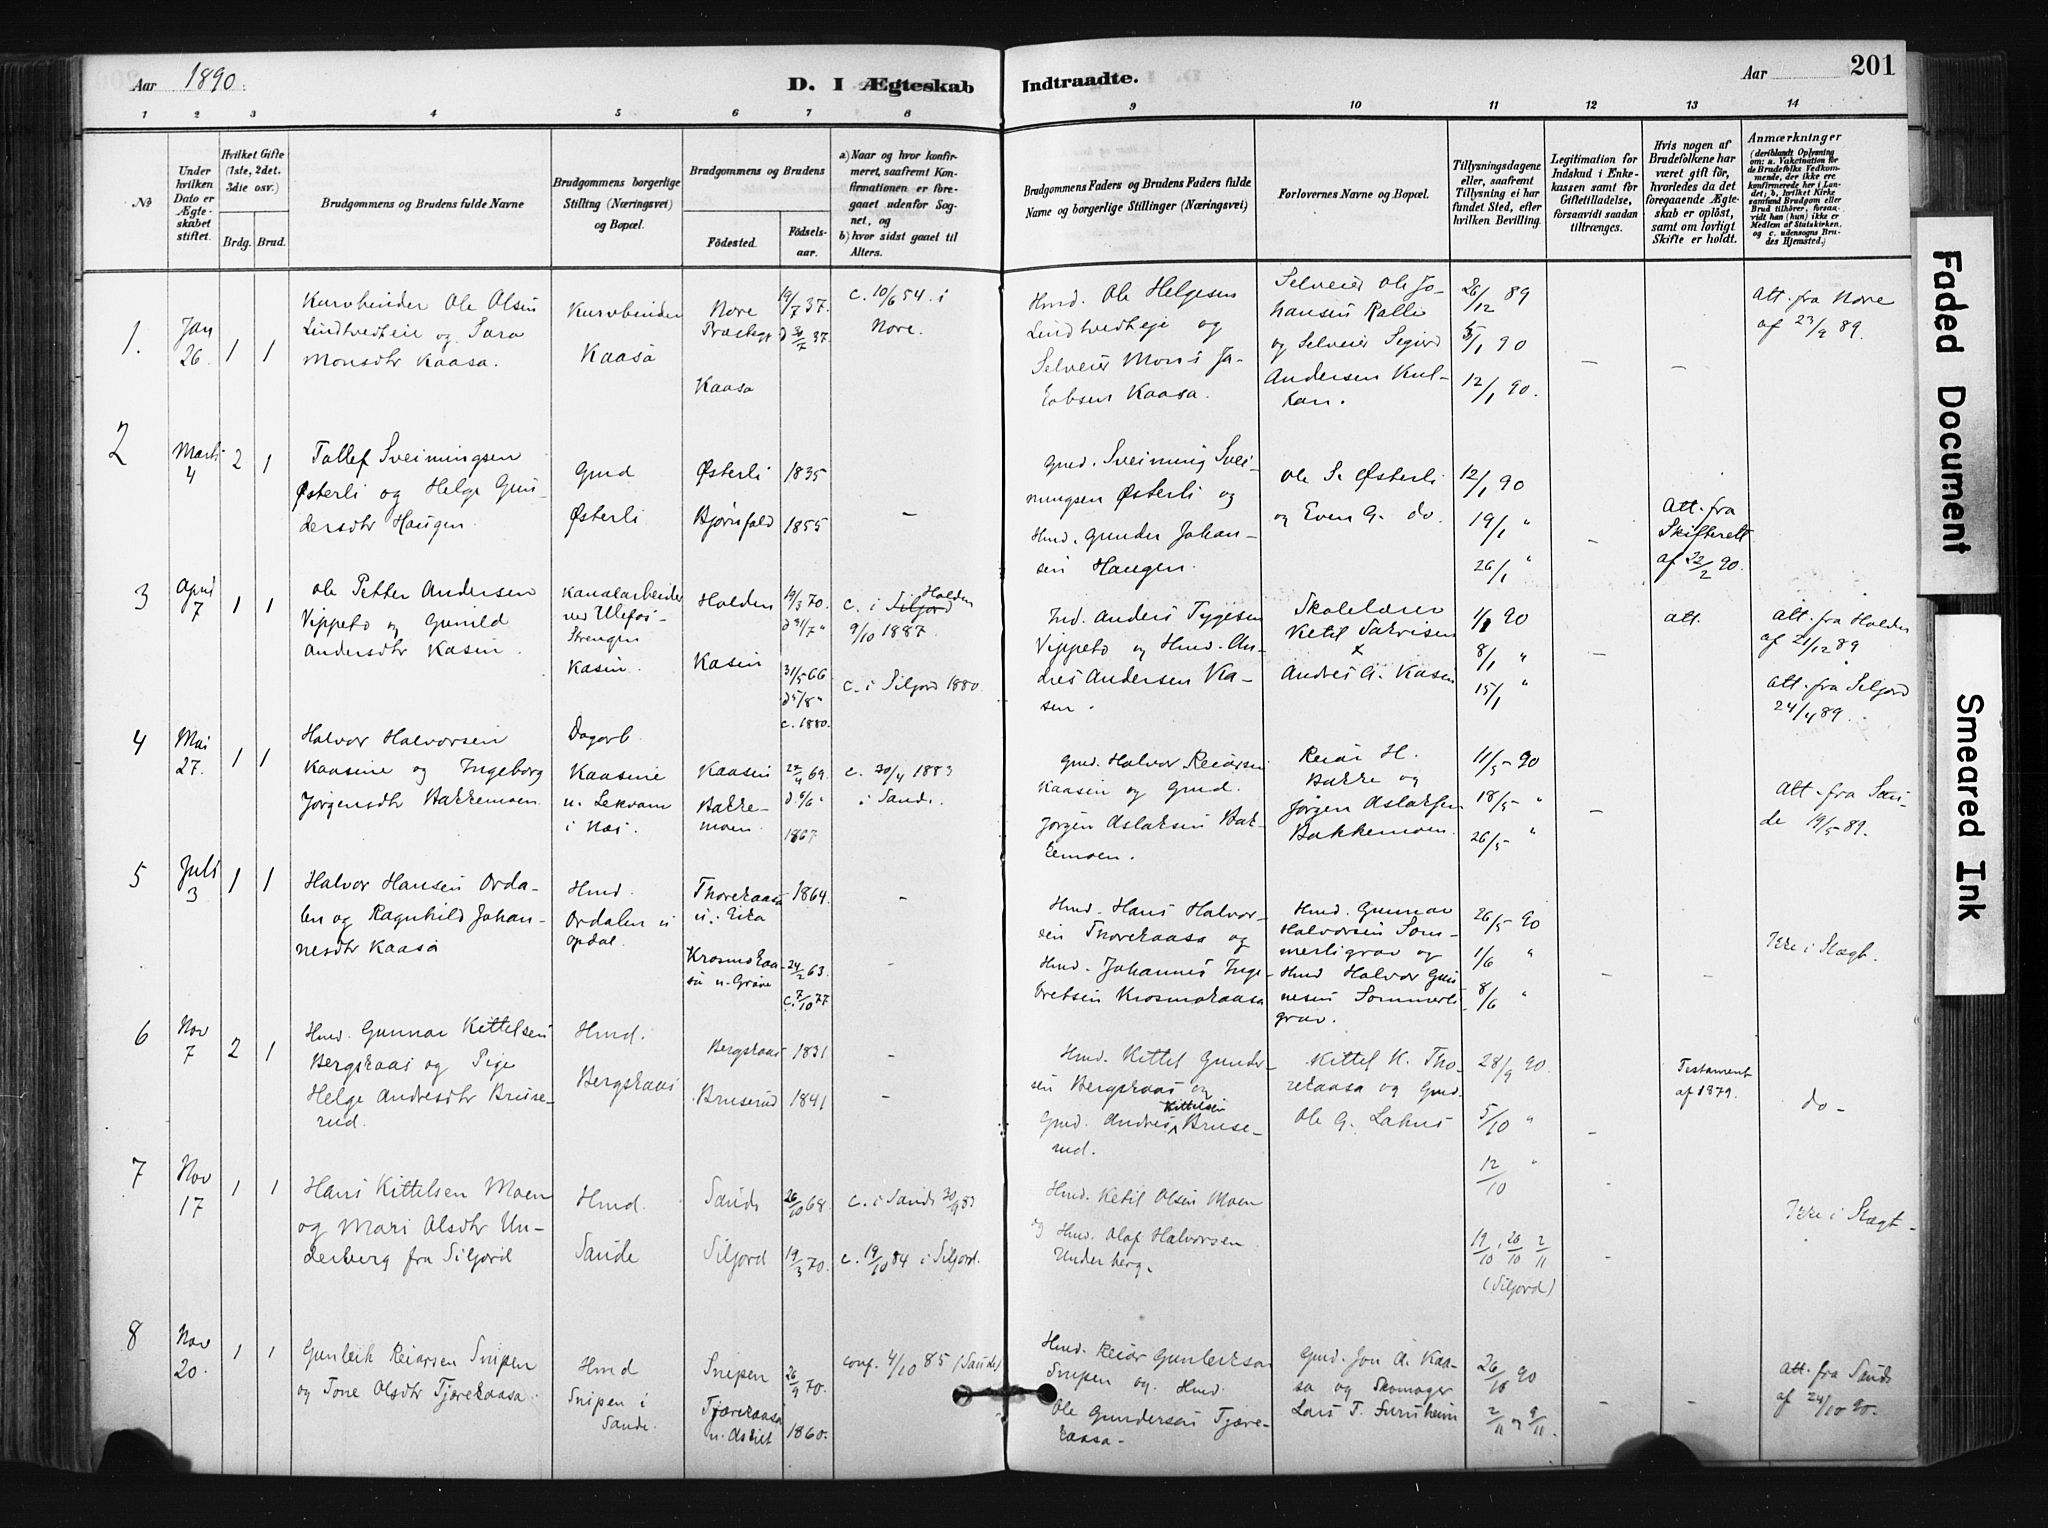 Aar 1890.
D. I Ægteskab Indtraadte.
Aar
201
1 2 3 4 5 6 7 8 9 10 11 12 13 14
No
Under hvilken Dato er Ægteskabet stiftet.
Hvilket Gifte (1ste, 2det. 3die osv.)
Brdg. Brud.
Brudgommens og Brudens fulde Navne
Brudgommens borgerlige Stilling (Næringsvei) og Bopæl.
Brudgommens og Brudens
Fødested.
Fødselsaar.
a) Naar og hvor konfirmeret, saafremt Konfirmationen er foregaaet udenfor Sognet, og
b) hvor sidst gaaet til Alters.
Brudgommens Faders og Brudens Faders fulde Navne og borgerlige Stillinger (Næringsvei)
Forlovernes Navne og Bopæl.
Tillysningsdagene eller, saafremt Tillysning ei har fundet Sted, efter hvilken Bevilling.
Legitimation for Indskud i Enkekassen samt for Giftetilladelse, forsaavidt saadan tiltrænges.
Hvis nogen af Brudefolkene har været gift før, hvorledes da det foregaaende Ægteskab er opløst, samt om lovligt Skifte er holdt.
Anmærkninger
(deriblandt Oplysning om: a. Vakcination for de Brudefolks Vedkommende, der ikke ere konfirmerede her i Landet; b. hvilket Kirkesamfund Brudgom eller Brud tilhører, forsaavidt han (hun) ikke er Medlem af Statskirken, og c. udensogns Brudes Hjemsted.)
1.
Jan
26.
1 1
Kurvbinder Ole Olsen
Lindtvedteie og Sara
Monsdtr Kaasa.
Kurvbinder
Kaasa
Nore
Præstegj
Kaasa
19/7 37.
d 30/7 37.
c. 10/6 54. i
Nore.
Hmd. Ole Helgesen
Lindtvedteje og
Selveier Mons Ja-
kobsen Kaasa.
Selveier Ole Jo-
hansen Ralle
og Selveier Sigurd
Andersen Kul-
kan.
26/12 89
5/1 90
12/1 90.
–
–
Att. fra Nore
af 23/9 89.
2
Marts
4
2 1
Tollef Sveinungsen
Østerli og Helge Gun-
dersdtr Haugen.
Gmd
Østerli
Østerli
Bjørnfald
1835
1855
–
Gmd. Sveinung Svei-
nungsen Østerli og
Hmd. Gunder Johan-
sen Haugen.
Ole S. Østerli
og Even G. do.
12/1 90
19/1 "
26/1 "
–
Att. fra
Skifterett
af 22/2 90.
3
April
7
1 1
Ole Petter Andersen
Vippeto og Gunild
Andersdtr Kasin.
Kanalarbeider
ved Ulefos-
Strengen
Kasin.
Holden
Kasin
19/3 70.
d 31/7 "
31/5 66
d 5/8 "
c. 1880.
Holden
c. i Siljord
9/10 1887.
c. i Siljord 1880.
Ind. Anders Tygesen
Vippeto og Hmd. An-
dres Andersen Ka-
sen.
Skolelærer
Ketil Sakrisen
x
Andres A. Kasin
1/1 90
8/1 "
15/1 "
–
att.
Att. fra Holden
af 21/12 89
Att. fra Siljord
24/4 89.
4
Mai
27.
1 1
Halvor Halvorsen
Kaasine og Ingeborg
Jørgensdtr Bakkemoen.
Dagarb.
Kaasine
u. Lekvam
i Næs.
Kaasin
Bakke-
moen.
22/4 69.
d. 6/6 "
1867
c. 30/4 1883
i Sande.
Gmd. Halvor Reiarsen
Kaasin og Gmd.
Jørgen Aslaksen Bak-
kemoen.
Reiar H.
Bakke og
Jørgen Aslaksen
Bakkemoen.
11/5 90
18/5 "
26/5 "
–
Att. fra San-
de 19/5 89.
5
Juli
3
1 1
Halvor Hansen Orda-
len og Ragnhild Johan-
nesdtr Kaasa
Hmd.
Ordalen u
Opdal.
Thorekaasa
u. Eika
Krosmokaa-
sa u. Grave
1864.
24/2 63.
c. 7/10 77
–
–
Hmd. Hans Halvor-
sen Thorekaasa og
Hmd. Johannes Inge-
bretsen Krosmokaasa
Hmd. Gunnar
Halvorsen Som-
merligrav og
Hmd Halvor Gun
nesen Sommerli
grav.
26/5 90
1/6 "
8/6 "
–
–
Ikke i Slægt.
6
Nov
7
2 1
Hmd. Gunnar Kittelsen
Bergskaas og Pige
Helge Andresdtr Bruse-
rud.
Hmd.
Bergskaas
Bergskaas
Bruserud
1831
1841
–
–
Hmd. Kittel Gunder-
sen Bergskaas og
Kittelsen
Gmd. Andres Bruse-
rud.
Kittel K. Tho-
rekaasa og Gmd.
Ole G. Lahus
28/9 90.
5/10 "
12/10 "
–
Testament
af 1879.
do –
7
Nov
17
1 1
Hans Kittelsen Moen
og Mari Olsdtr Un-
derberg fra Siljord
Hmd.
Sande
Sande
Siljord
26/10 68.
19/3 70.
c. i Sande 30/9 83
c. 19/10 84 i Siljord.
Hmd. Ketil Olsen Moen
og Hmd. Olaf Halvorsen
Underberg.
19/10, 26/10 2/11
(Siljord)
–
Ikke i Slægt –
8
Nov
20.
1 1
Gunleik Reiarsen Snipen
og Tone Olsdtr Tjærekaasa.
Hmd
Snipen i
Sande.
Snipen
Tjærekaasa
u. Askilt
26/9 70.
1860.
conf. 4/10 85 (Sande)
Hmd. Reiar Gunleiksen
Snipen og Hmd.
Ole Gundersen Tjære-
kaasa –
Gmd. Jon A. Kaa-
sa og Skomager
Lars T. Furuheim
26/10 90
2/11 og 9/11
–
–
Att. fra Sande
af 24/10 90.
Faded Document
Smeared Ink